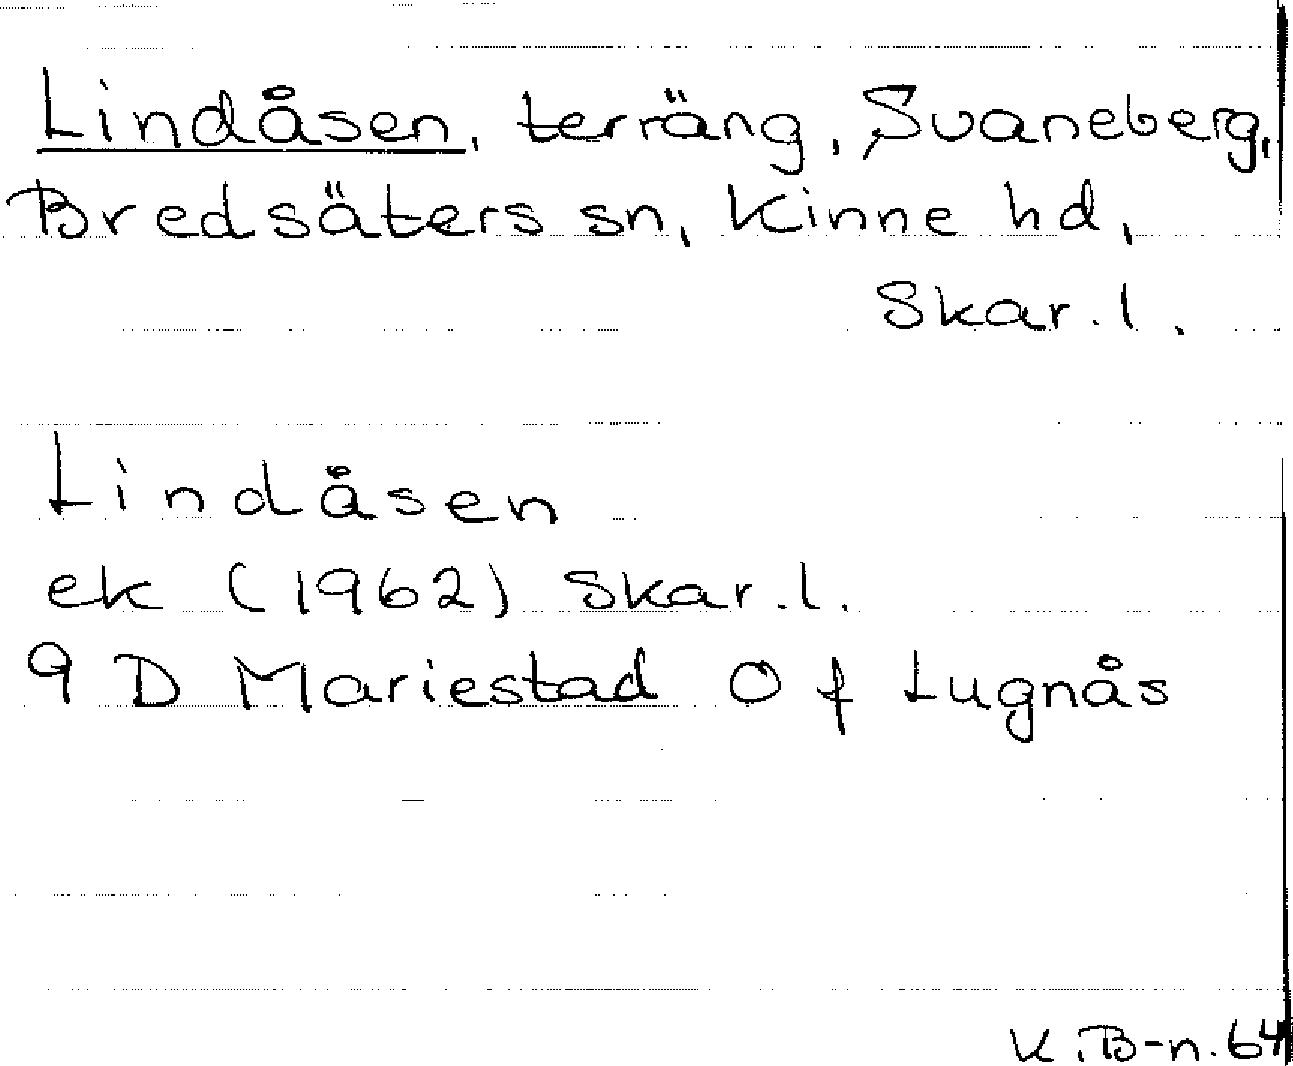 Lindåsen, terräng, Svaneberg,
Bredsäters sn, Kinne hd,
Skar. l.
Lindåsen
ek (1962) Skar. l.
9 D Mariestad O f Lugnås
K. B-n. 64